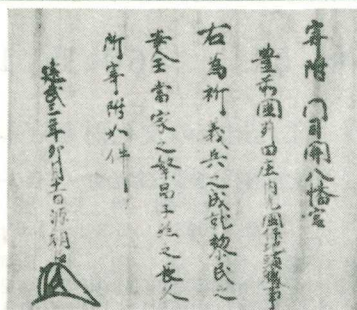 寄附 門司関八幡宮
豊前國 田庄内 地頭職事
右為祈義兵之成就黎民之
安全當家之繁昌子孫之長久
所寄附如件
建武三年 月十 日源朝臣